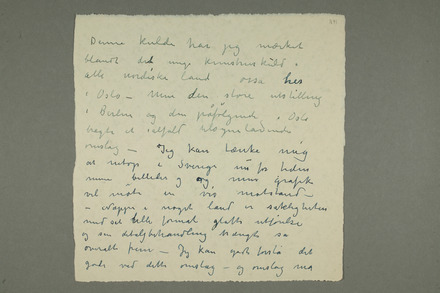 Denne kulde har jeg mærket
blandt det unge kunstnerkuld i
alle nordiske land ossa her
i Oslo – Min den store utstilling
i Berlin og den påfølgende i Oslo
i alfald
omslag – Jeg kan tænke mig
at netop i Sverige nu for tiden
mine billeder og min grafik
vil møde en vis motstand –
– i noget land er
med sit lille format glatte utførelse
og sin detaljbehandling trængt sa
overalt frem – Jeg kan godt forstå det
gode ved dette omslag – og omslag må